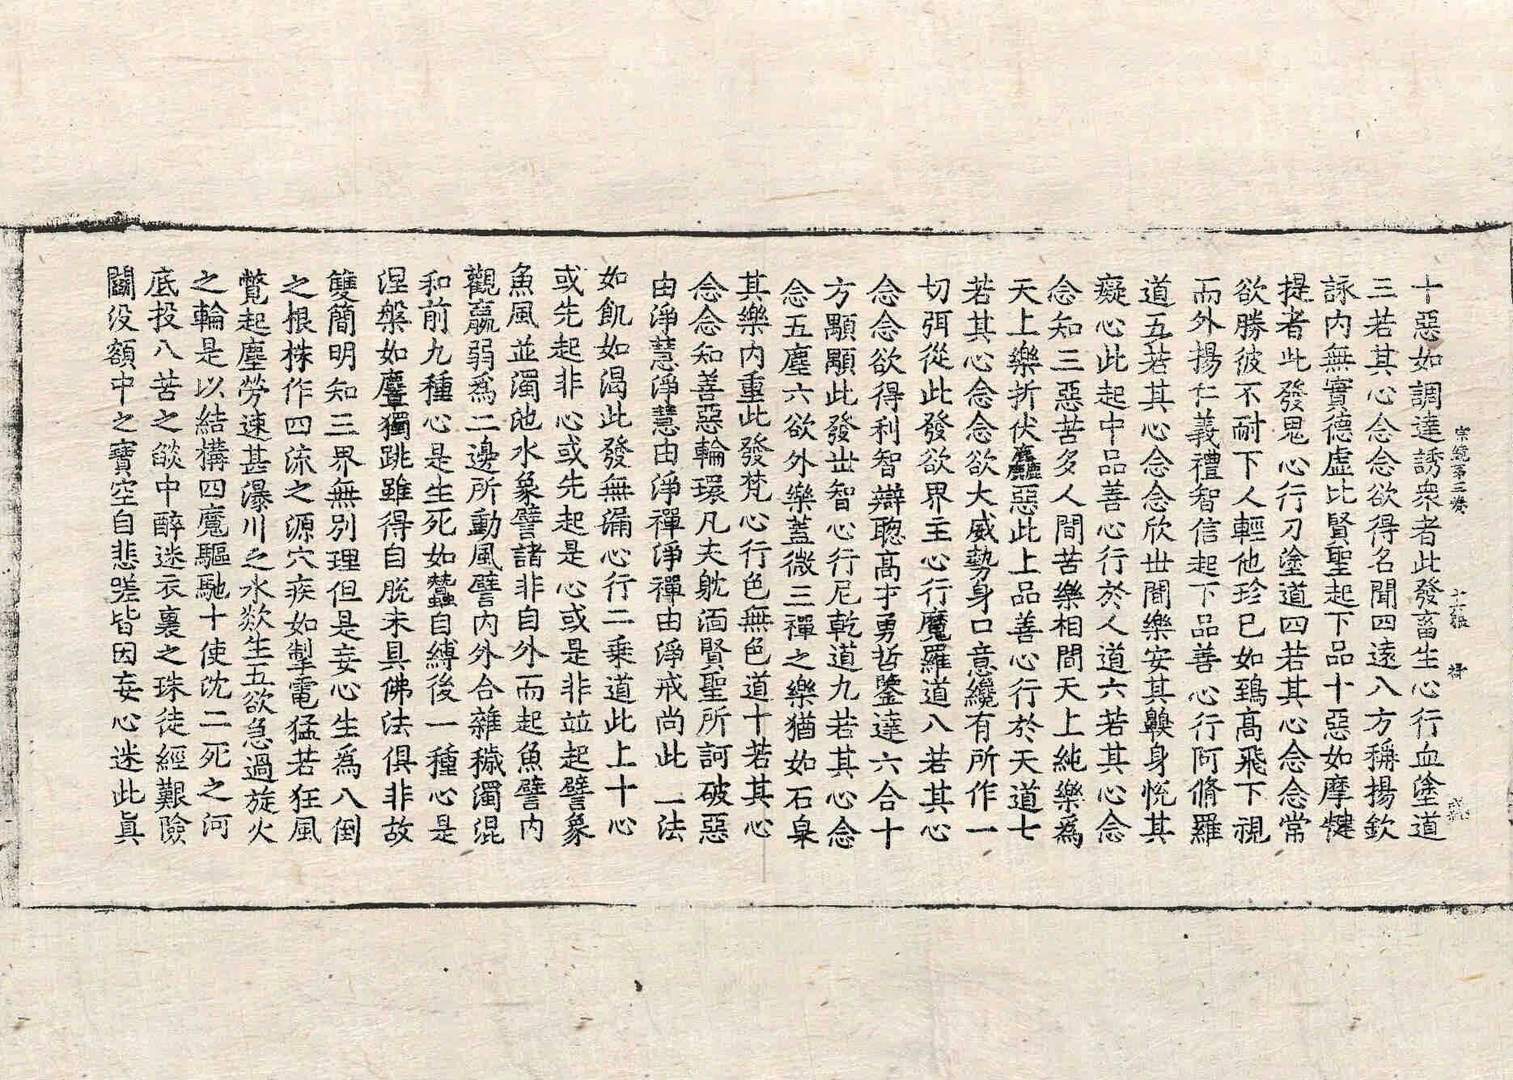 宗鏡第三卷
十惡如調達誘衆者此發畜生心行血塗道
三若其心念念欲得名聞四遠八方稱揚欽
詠内無實德虛比賢聖起下品十惡如摩犍
提者此發鬼心行刀塗道四若其心念念常
欲勝彼不耐下人輕他珍已如鵄高飛下視
而外揚仁義禮智信起下品善心行阿脩羅
道五若其心念念欣世間樂安其臰身悅其
癡心此起中品善心行於人道六若其心念
念知三惡苦多人間苦樂相間天上純樂爲
天上樂折伏麤惡此上品善心行於天道七
若其心念念欲大威勢身口意纔有所作一
切弭從此發欲界主心行魔羅道八若其心
念念欲得利智辯聰高才勇哲鑒達六合十
方顒顒此發世智心行尼乾道九若其心念
念五塵六欲外樂蓋微三禪之樂猶如石泉
其樂内重此發梵心行色無色道十若其心
念念知善惡輪環凡夫躭湎賢聖所訶破惡
由淨慧淨慧由淨禪淨禪由淨戒尚此一法
如飢如渴此發無漏心行二乘道此上十心
或先起非心或先起是心或是非並起譬象
魚風並濁池水象譬諸非自外而起魚譬内
觀羸弱爲二邊所動風譬内外合雜穢濁混
和前九種心是生死如蠶自縛後一種心是
涅槃如麞獨跳雖得自脫未具佛法俱非故
雙簡明知三界無別理但是妄心生爲八倒
之根株作四流之源穴疾如掣電猛若狂風
瞥起塵勞速甚瀑川之水欻生五欲急過旋火
之輪是以結構四魔驅馳十使沈二死之河
底投八苦之燄中醉迷衣裏之珠徒經艱險
鬭没額中之寶空自悲嗟皆因妄心迷此眞